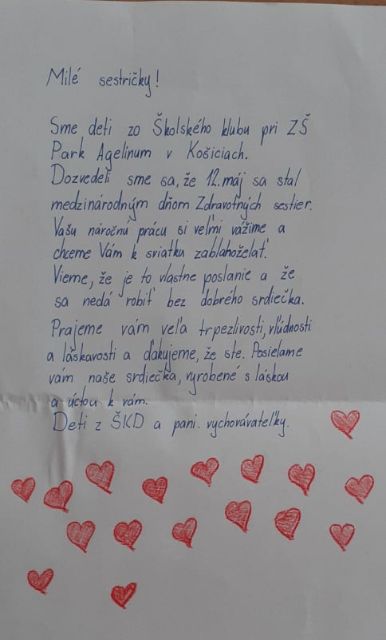 Milé sestričky!
Sme deti zo Školského klubu pri ZŠ
Park Angelinum v Košiciach.
Dozvedeli sme sa, že 12. máj sa stal
medzinárodným dňom Zdravotných sestier.
Vašu náročnú prácu si veľmi vážime a
chceme Vám k sviatku zablahoželať.
Vieme, že je to vlastne poslanie a že
sa nedá robiť bez dobrého srdiečka.
Prajeme vám veľa trpezlivosti, vľúdnosti
a láskavosti a ďakujeme, že ste. Posielame
vám naše srdiečka, vyrobené s láskou
a úctou k vám.
Deti z ŠKD a pani. vychovávateľky.